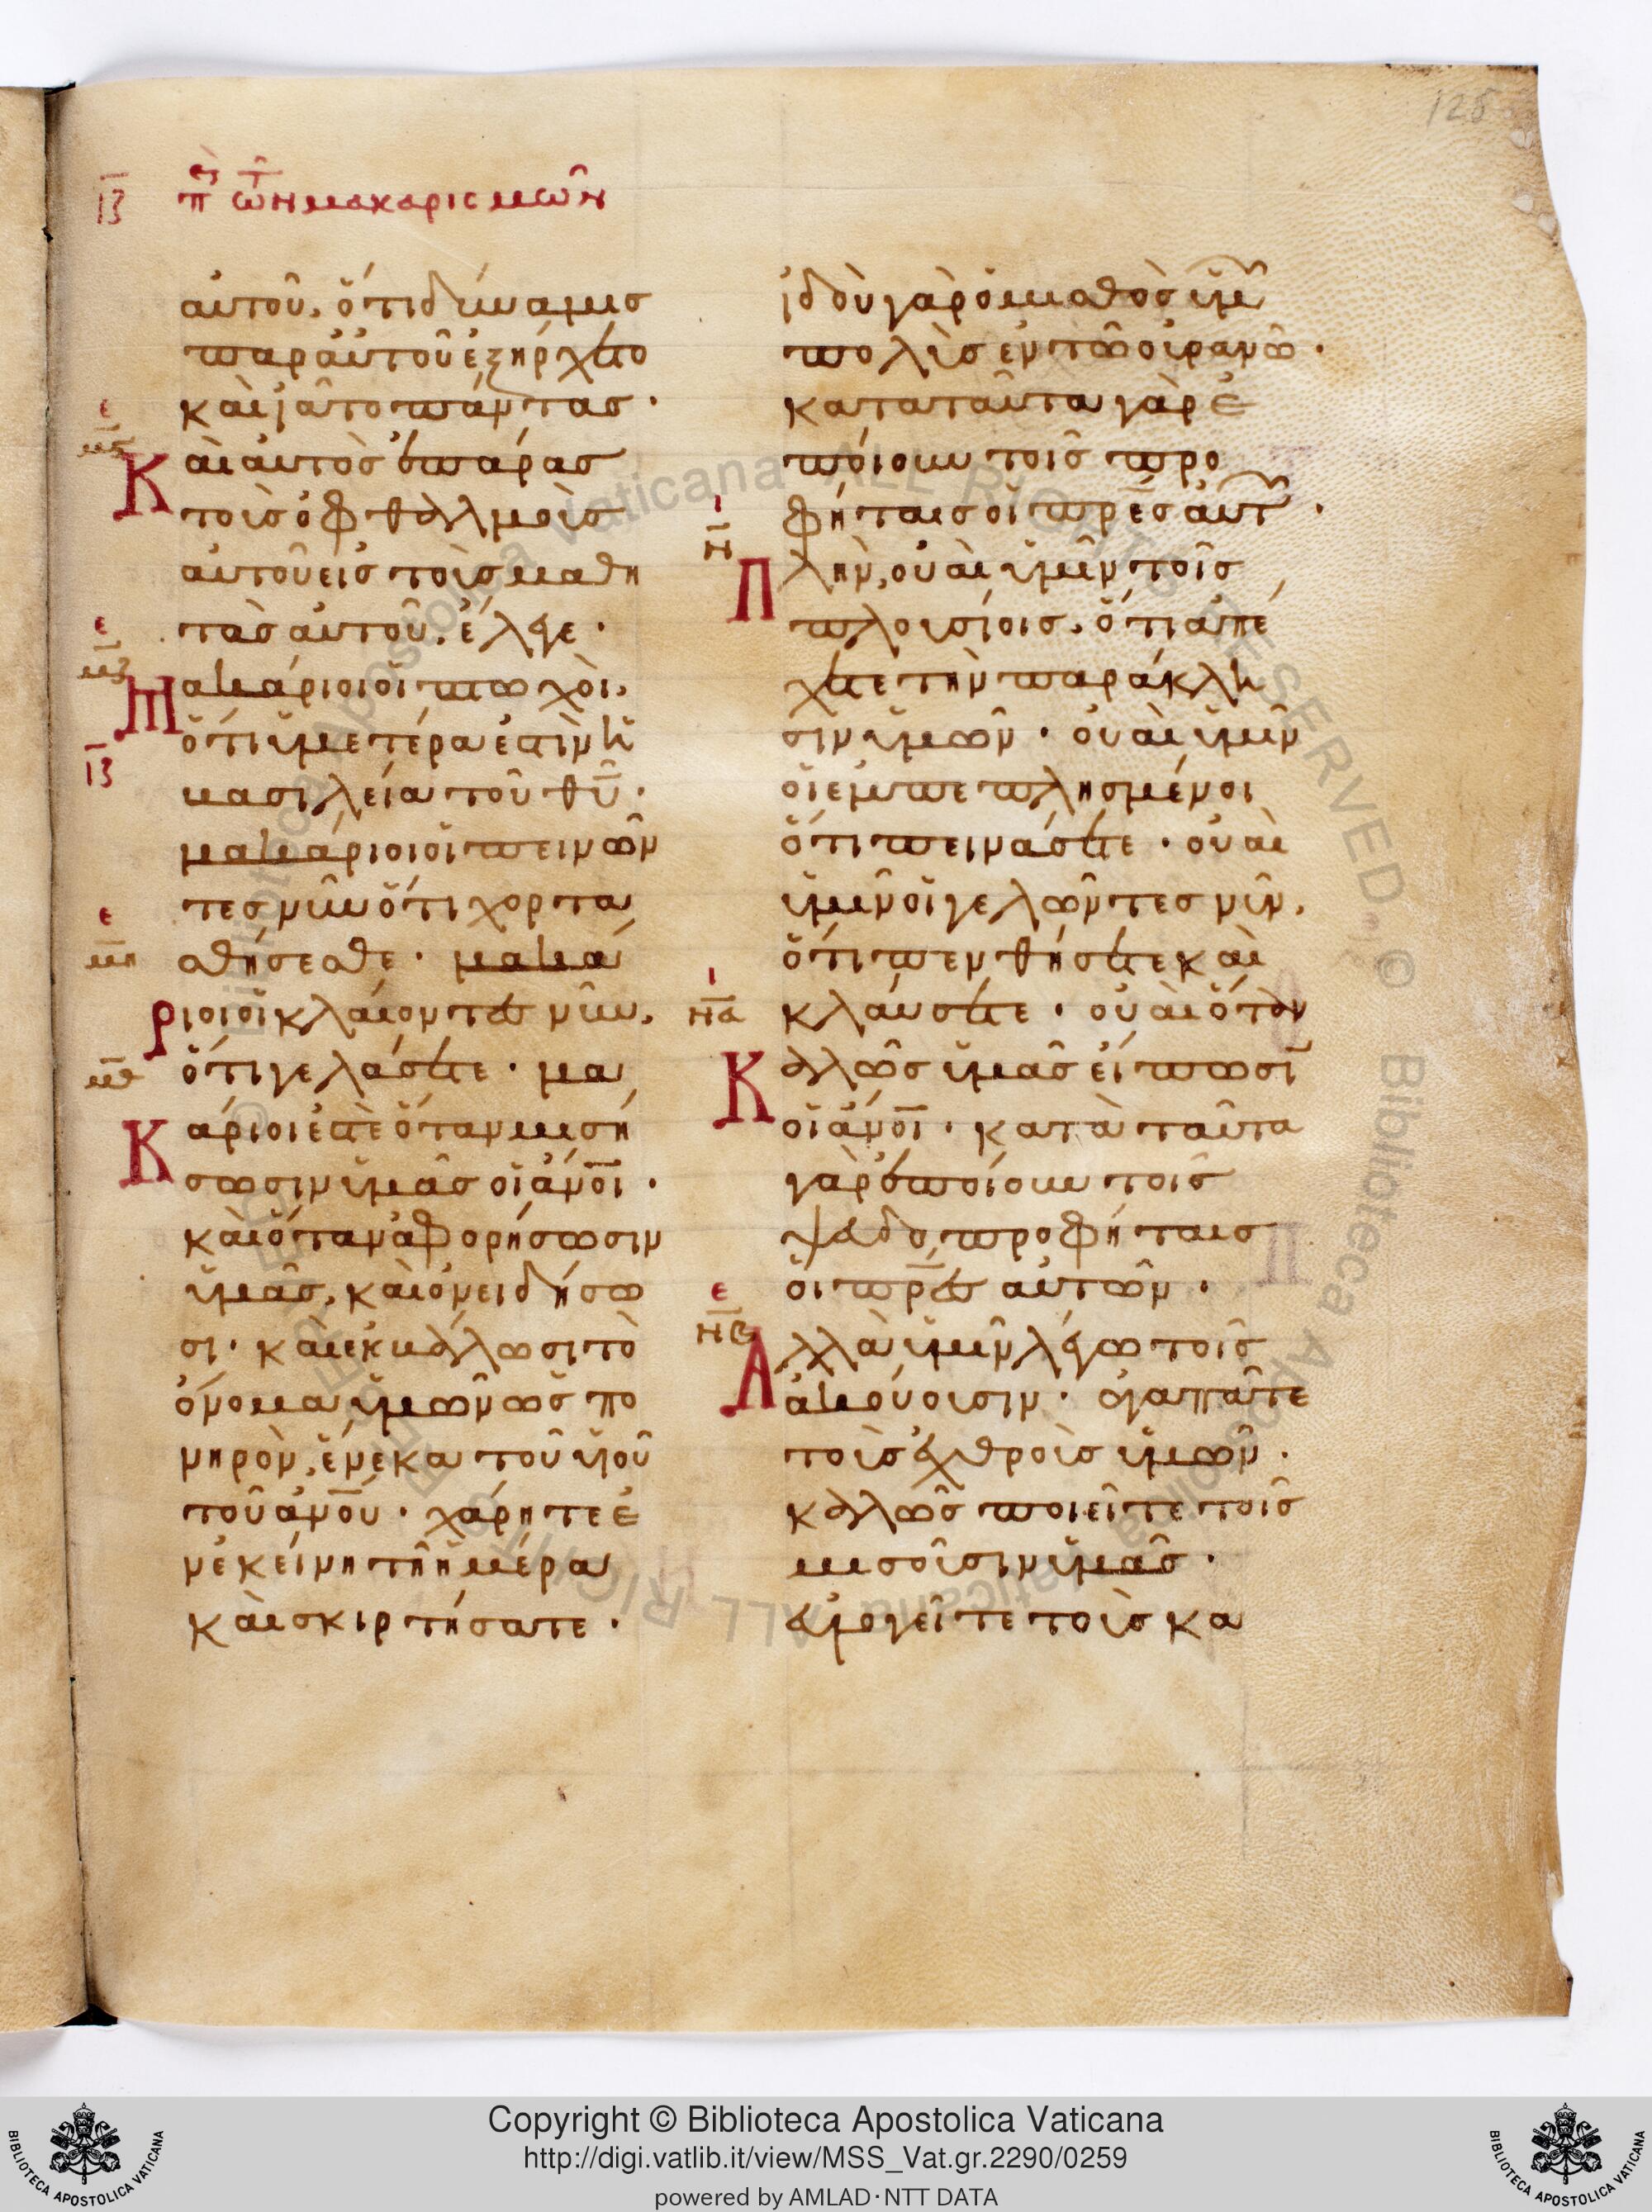 128
ΙΒ π̑ερ τῶν μακαρισμῶν
αυτοῦ, ὅτι δύναμισ
παρ αὐτοῦ ἐξήρχετο
καὶ ἰᾶτο πάντασ·
ε
μϛ
Καὶ αὐτὸσ ἐπάρασ
τοὺσ ὀφθαλμοὺσ
αὐτοῦ εἰσ τοὺσ μαθη
τὰσ αὐτοῦ, ἔλεγε·
ε
μζ
Μακάριοι οἱ πτωχοὶ,
ΙΒ
ὅτι ὑμετέρα ἐστὶν ἡ
βασιλεία τοῦ θυ̅·
μακάριοι οἱ πεινῶν
τεσ νῦν ὅτι χορτα
ε
μη
σθήσεσθε· μακά
ριοι οἱ κλαίοντεσ νῦν,
μθ
ὅτι γελάσετε· μα
Κάριοι ἐστὲ ὅταν μισή
σωσιν ὑμᾶσ οἱ ἄνοι̅·
καὶ ὅταν ἀφορήσωσιν
ὑμᾶσ, καὶ ὀνειδήσω
σι· καὶ ἐκβάλωσι τὸ
ὄνομα ὑμῶν ὡσ πο
νηρὸν, ἕνεκα τοῦ υἱοῦ
τοῦ ἀνου̅· χάρητε ἐ
ν ἐκείνη τῆ ἡμέρα
καὶ σκιρτήσατε·
ἰδοὺ γὰρ ὁ μισθὸσ ὑμῶ
πολὺσ ἐν τῶ οὐρανῶ·
κατα ταῦτα γὰρ ἐ
ποίουν τοῖσ προ
φήταισ οἱ πρε̅σ αὐτῶ·
ι
ν
Πλὴν, οὐαὶ ὑμῖν τοῖσ
πλουσίοισ, ὅτι ἀπέ
χετε τὴν παράκλη
σιν ὑμῶν· οὐαὶ ὑμῖν
οἱ ἐμπεπλησμένοι
ὅτι πεινάσετε· οὐαὶ
ὑμῖν οἱ γελῶντεσ νῦν,
ὅτι πενθήσετε καὶ
ι
να
κλαύσετε· οὐαὶ ὅταν
Καλῶσ ὑμᾶσ εἴπωσϊ
οἱ ἄνοι̅· κατὰ ταῦτα
γὰρ ἐποίουν τοῖσ
ψευδοπροφήταισ
οἱ πρ̅εσ αὐτῶν·
ε
νβ
Αλλὰ ὑμῖν λέγω τοῖσ
ἀκούουσιν· ἀγαπᾶτε
τοὺσ ἐχθροὺσ ὑμῶν·
καλῶσ ποιεῖτε τοῖσ
μισοῦσιν ὑμᾶσ·
εὐλογεῖτε τοὺσ κα
Copyright © Biblioteca Apostolica Vaticana
http://digi.vatlib.it/view/MSS_Vat.gr.2290/0259
powered by AMLAD·NTT DATA
BIBLIOTECA APOSTOLICA VATICANA
BIBLIOTECA APOSTOLICA VATICANA
© Biblioteca Apostolica Vaticana ALL RIGHTS RESERVED